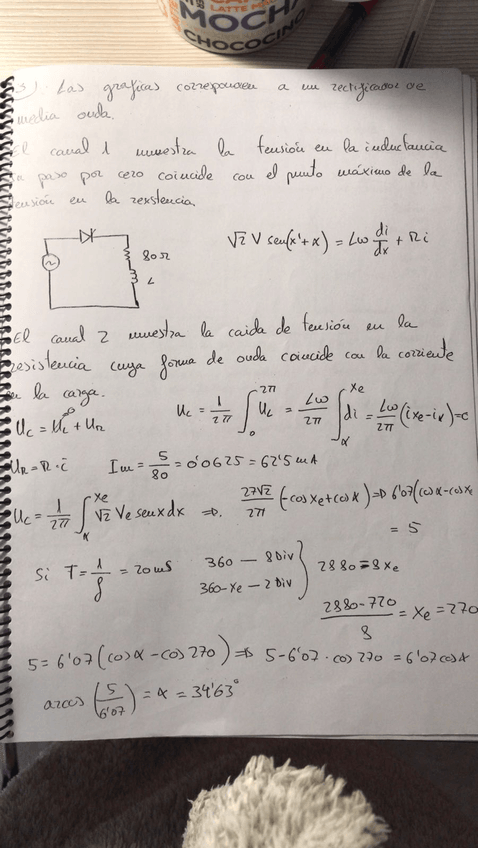 LATTE MA
MOCHA
CHOCOCINO
3) Las graficas corresponden a un rectificador de
media onda.
El canal 1 muestra la tensión en la inductancia
paso por cero coincide con el punto máximo de la
tensión en la resistencia.
80Ω
L
√2 V sen(x'+α) = Lω di/dx + R i
El canal 2 muestra la caida de tensión en la
resistencia cuya forma de onda coincide con la corriente
en la carga.
Uc = 1/2π ∫₀^2π UL = Lω/2π ∫α^Xe di = Lω/2π (ixe - iα) = 0
Uc = UL⁰ + UR
UR = R · i    Im = 5/80 = 0'0625 = 62'5 mA
Uc = 1/2π ∫α^Xe √2 Ve senx dx ⇒. 27√2/2π (-cosXe + cosα) ⇒ 6'07(cosα - cosXe
= 5
Si T = 1/f = 20ms
360 — 8Div
360-Xe — 2Div
2880 = 8Xe
2880-720/8 = Xe = 270
5 = 6'07 (cosα - cos 270) ⇒ 5 - 6'07 · cos 270 = 6'07 cosα
arcos (5/6'07) = α = 34'63°